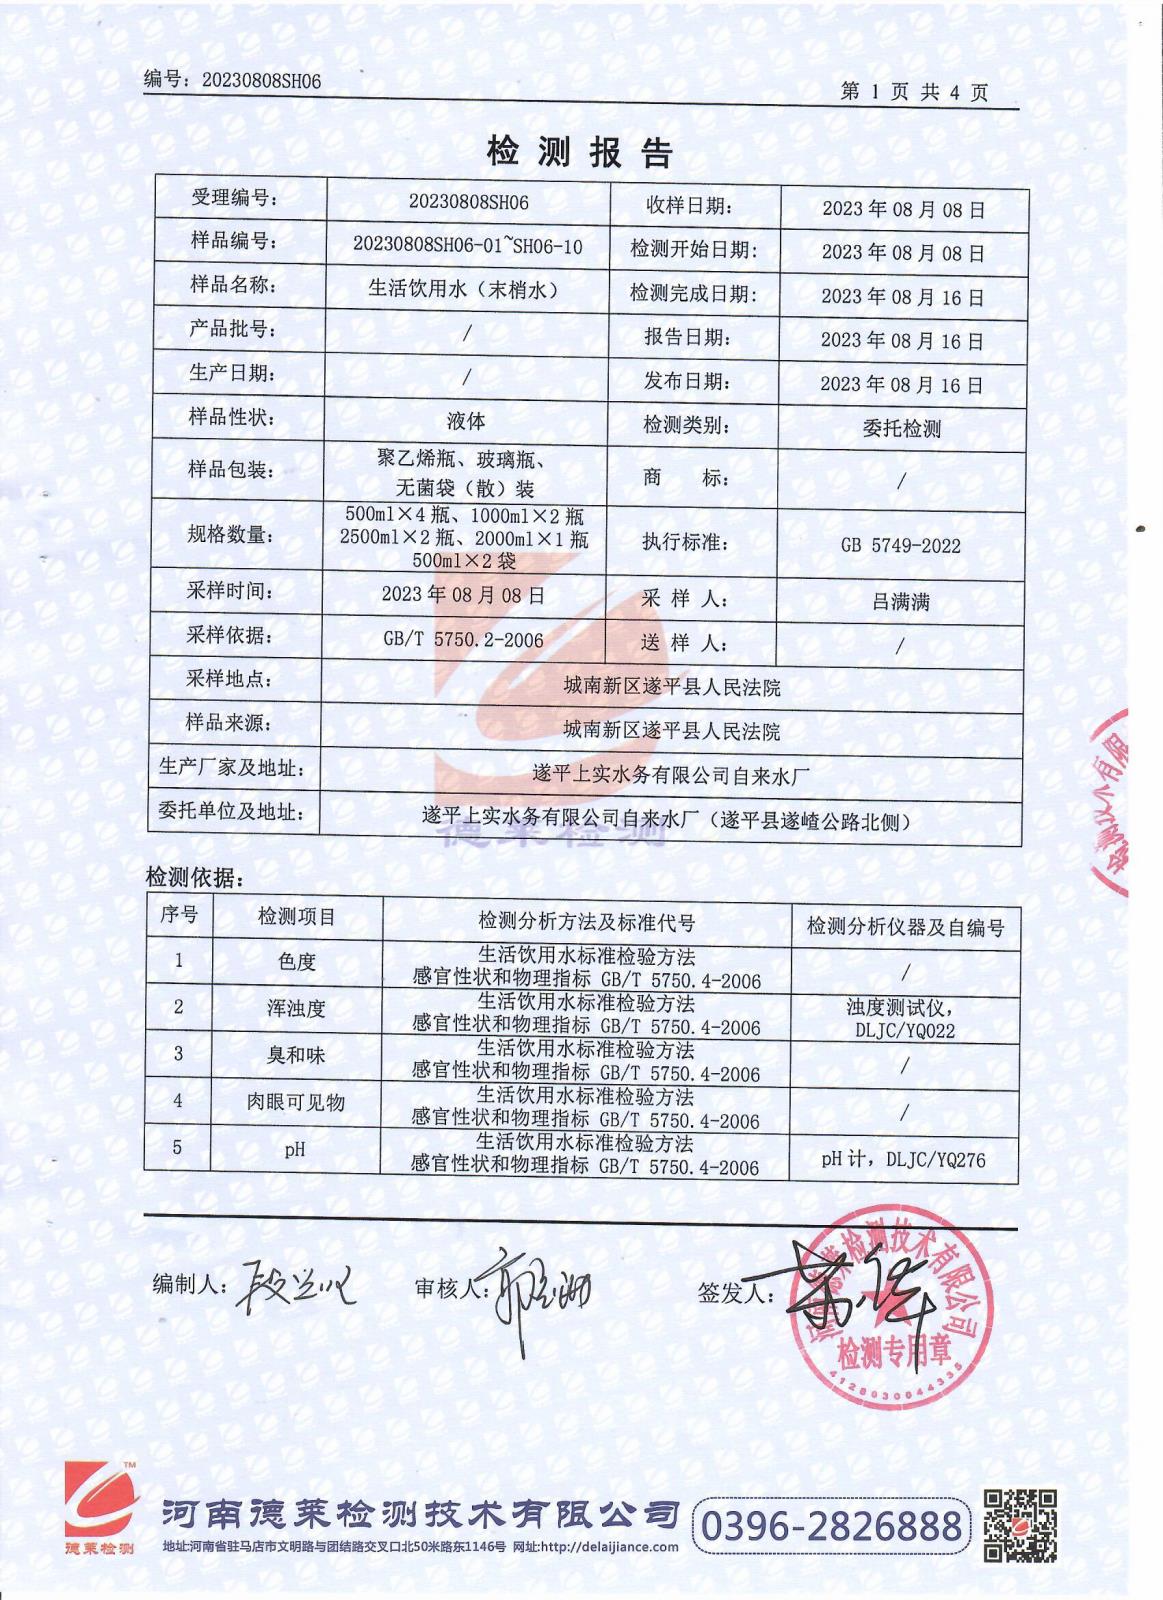 编号：20230808SH06
第 1 页 共 4 页
检 测 报 告
受理编号： 20230808SH06 收样日期： 2023 年 08 月 08 日
样品编号： 20230808SH06-01~SH06-10 检测开始日期： 2023 年 08 月 08 日
样品名称： 生活饮用水（末梢水） 检测完成日期： 2023 年 08 月 16 日
产品批号： / 报告日期： 2023 年 08 月 16 日
生产日期： / 发布日期： 2023 年 08 月 16 日
样品性状： 液体 检测类别： 委托检测
样品包装： 聚乙烯瓶、玻璃瓶、 商 标： /
无菌袋（散）装
500ml×4 瓶、1000ml×2 瓶
规格数量： 2500ml×2 瓶、2000ml×1 瓶 执行标准： GB 5749-2022
500ml×2 袋
采样时间： 2023 年 08 月 08 日 采 样 人： 吕满满
采样依据： GB/T 5750.2-2006 送 样 人： /
采样地点： 城南新区遂平县人民法院
样品来源： 城南新区遂平县人民法院
生产厂家及地址： 遂平上实水务有限公司自来水厂
委托单位及地址： 遂平上实水务有限公司自来水厂（遂平县遂嵖公路北侧）
德莱检测
检测依据：
序号 检测项目 检测分析方法及标准代号 检测分析仪器及自编号
1 色度 生活饮用水标准检验方法 /
感官性状和物理指标 GB/T 5750.4-2006
2 浑浊度 生活饮用水标准检验方法 浊度测试仪，
感官性状和物理指标 GB/T 5750.4-2006 DLJC/YQ022
3 臭和味 生活饮用水标准检验方法 /
感官性状和物理指标 GB/T 5750.4-2006
4 肉眼可见物 生活饮用水标准检验方法 /
感官性状和物理指标 GB/T 5750.4-2006
5 pH 生活饮用水标准检验方法 pH 计，DLJC/YQ276
感官性状和物理指标 GB/T 5750.4-2006
编制人： 审核人： 签发人：
河南德莱检测技术有限公司
检测专用章
4128030044335
TM
德莱检测
河南德莱检测技术有限公司
0396-2826888
地址:河南省驻马店市文明路与团结路交叉口北50米路东1146号 网址:http://delaijiance.com